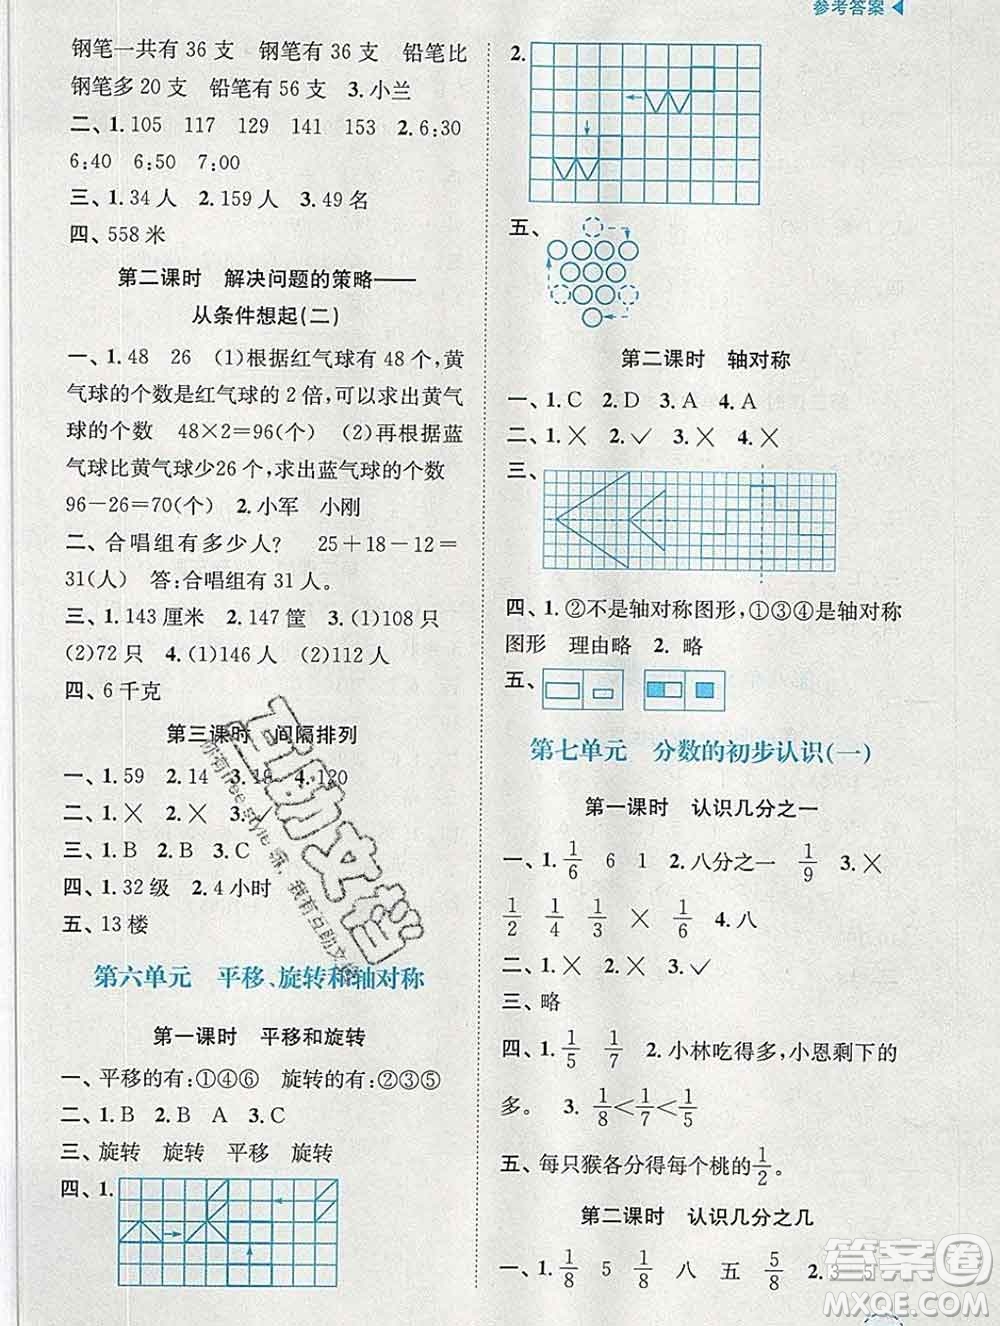 参考答案
钢笔一共有 36 支 钢笔有 36 支 铅笔比
钢笔多 20 支 铅笔有 56 支 3.小兰
二、1.105 117 129 141 153 2.6:30
6:40 6:50 7:00
三、1.34 人 2.159 人 3.49 名
四、558 米
第二课时 解决问题的策略——
从条件想起(二)
一、1.48 26 (1)根据红气球有 48 个,黄
气球的个数是红气球的 2 倍,可以求出黄气
球的个数 48×2=96(个) (2)再根据蓝
气球比黄气球少26 个,求出蓝气球的个数
96-26=70(个) 2.小军 小刚
二、合唱组有多少人? 25+18-12=
31(人) 答:合唱组有 31 人。
三、1.143 厘米 2.147 筐 3.(1)108 只
(2)72 只 4.(1)146 人 (2)112 人
四、6 千克
第三课时 间隔排列
一、1.59 2.14 3.18 4.120
二、1.× 2.× 3.✓
三、1.B 2.B 3.C
四、1.32 级 2.4 小时
五、13 楼
第六单元 平移、旋转和轴对称
第一课时 平移和旋转
一、平移的有:①④⑥ 旋转的有:②③⑤
二、1.B 2.B A 3.C
三、旋转 旋转 平移 旋转
四、1.
2.
五、
第二课时 轴对称
一、1.C 2.D 3.A 4.A
二、1.× 2.✓ 3.× 4.×
三、
四、1.②不是轴对称图形,①③④是轴对称
图形 理由略 2.略
五、
第七单元 分数的初步认识(一)
第一课时 认识几分之一
一、1.1/6 6 1 2.八分之一 1/9 3.×
1/2 1/4 1/3 × 1/4 4.八
二、1.× 2.× 3.✓ 4.×
三、略
四、1.1/5 1/7 2.小林吃得多,小恩剩下的
多。 3.1/8<1/7<1/5
五、每只猴各分得每个桃的1/2。
第二课时 认识几分之几
一、1.1/8 5 1/8 八 五 5/8 2.3 5
互助文档
答案圈
MXQE.COM